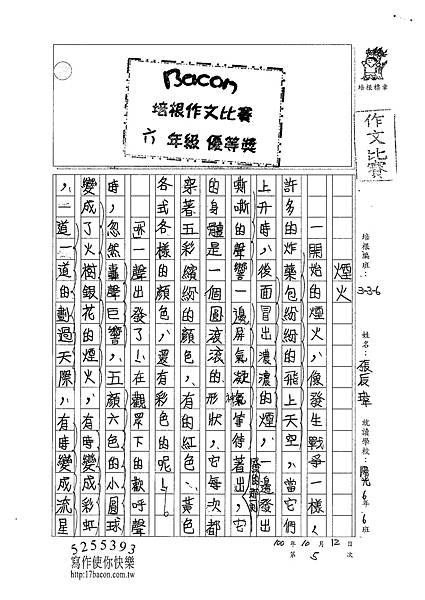 Bacon
培根作文比賽
六 年級 優等獎
培根標章
作文比賽
培根編班：336
姓名：張辰瑋
就讀學校：陽光6年6班
100年10月12日
第5次
煙火
一開始的煙火，像發生戰爭一樣，
許多的炸藥包紛紛的飛上天空，當它們
上升時，後面冒出濃濃的煙，一邊發出
嘶嘶的聲響一邊屏氣凝氣等待著出，它
的身體是一個圓滾滾的形狀，它每次都
穿著五彩繽紛的顏色，有的紅色、黃色
各式各樣的顏色，還有彩色的呢！。
一聲出發了！在觀眾下的歡呼聲
時，忽然轟聲巨響，五顏六色的小圓球
變成了火樹銀花的煙火，有時變成彩虹
，一道一道的劃過天際，有時變成流星
5255393
寫作使你快樂
http://17bacon.com.tw